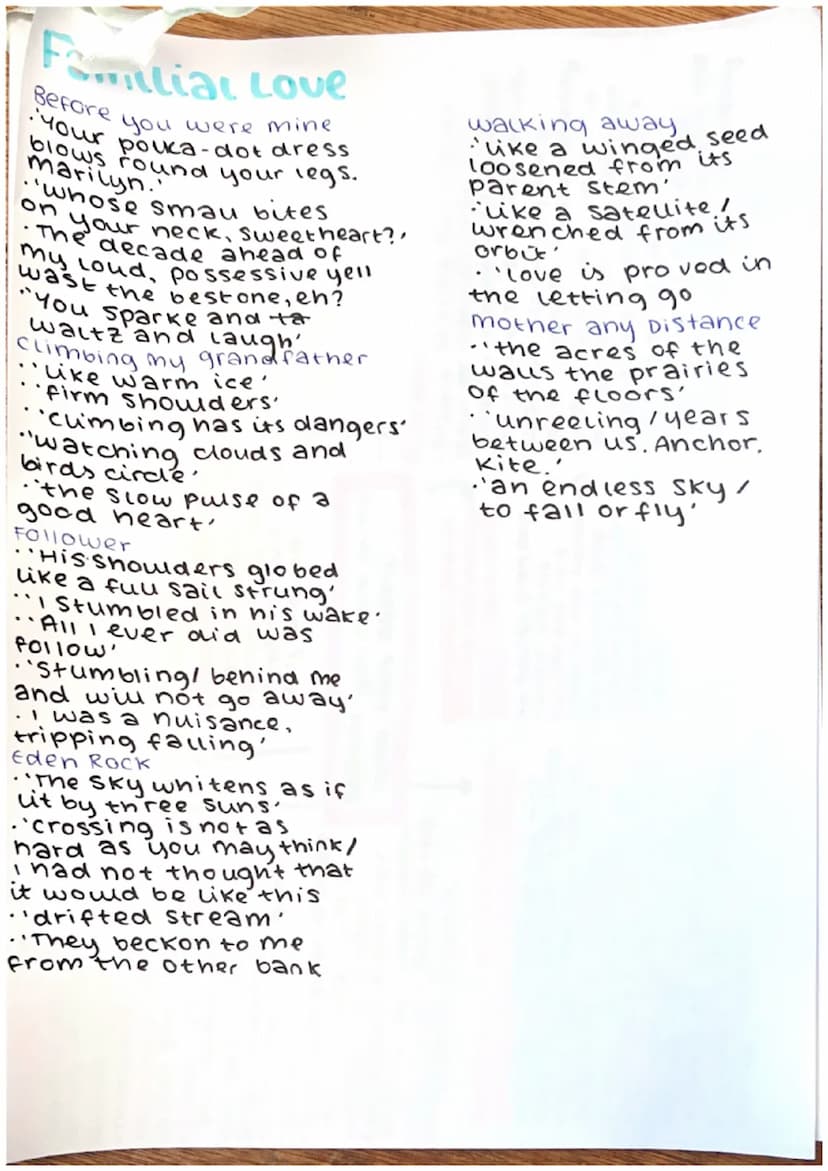 Familial Love
Before you were mine
·'Your polka-dot dress
blows round your legs.
Marilyn.'
·'whose small bites
on your neck, sweetheart?'
·The decade ahead of
my loud, possessive yell
wast the best one, eh?
·'You sparke and ta
waltz and laugh'
climbing my grandfather
·'Like warm ice'
·'firm shoulders'
·'climbing has its dangers'
·'watching clouds and
birds circle'
·'the slow pulse of a
good heart'
Follower
·'His shoulders globed
like a full sail strung'
·'I stumbled in his wake'
·'All I ever did was
follow'
·'Stumbling/ behind me
and will not go away'
·I was a nuisance,
tripping falling'
Eden Rock
·'The sky whitens as if
lit by three suns'
·'crossing is not as
hard as you may think/
I had not thought that
it would be like this
·'drifted stream'
·'They beckon to me
from the other bank
walking away
·'like a winged seed
loosened from its
parent stem'
·'Like a satellite/
wrenched from its
orbit'
·'love is proved in
the letting go
Mother any Distance
·'the acres of the
walls the prairies
of the floors'
·'unreeling/years
between us. Anchor.
Kite.'
·'an endless sky/
to fall or fly'